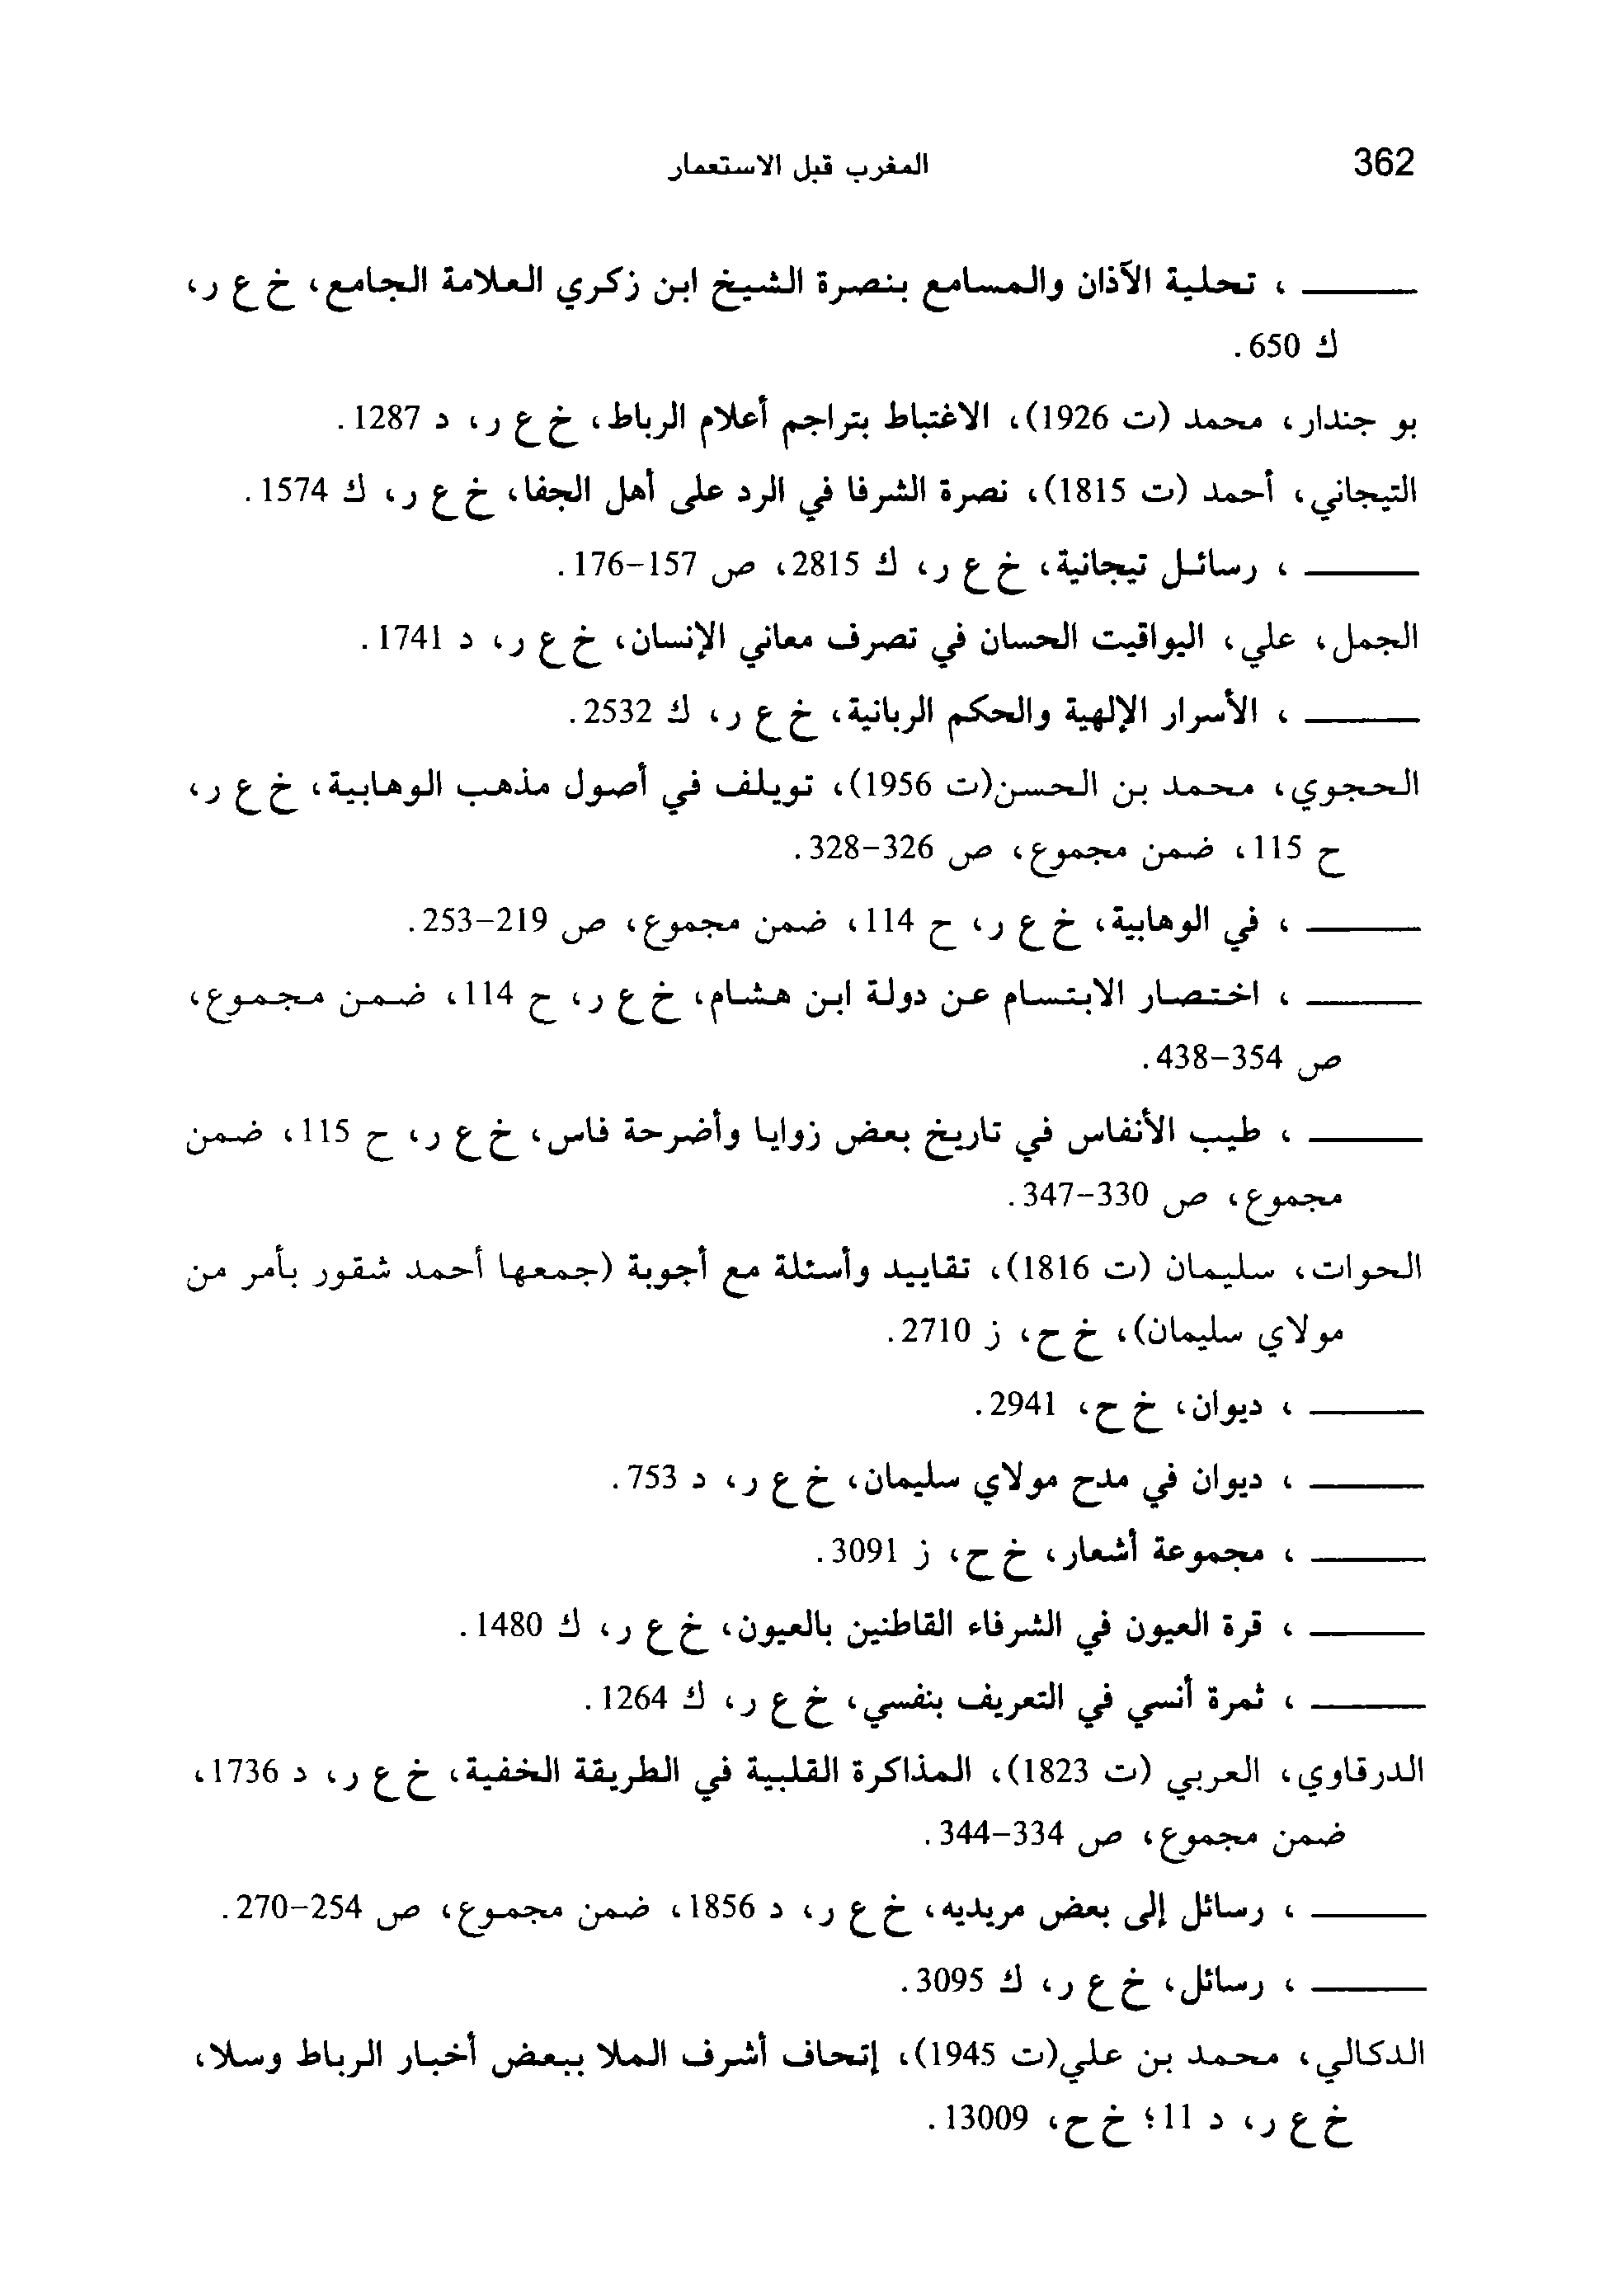 362 المغرب قبل الاستعمار
ـــــــ ، تحلية الآذان والمسامع بنصرة الشيخ ابن زكري العلامة الجامع، خ ع ر،
ك 650.
بو جندار، محمد (ت 1926)، الاغتباط بتراجم أعلام الرباط، خ ع ر، د 1287.
التيجاني، أحمد (ت 1815)، نصرة الشرفا في الرد على أهل الجفا، خ ع ر، ك 1574.
ـــــــ ، رسائل تيجانية، خ ع ر، ك 2815، ص 157-176.
الجمل، علي، اليواقيت الحسان في تصرف معاني الإنسان، خ ع ر، د 1741.
ـــــــ ، الأسرار الإلهية والحكم الربانية، خ ع ر، ك 2532.
الحجوي، محمد بن الحسن(ت 1956)، تويلف في أصول مذهب الوهابية، خ ع ر،
ح 115، ضمن مجموع، ص 326-328.
ـــــــ ، في الوهابية، خ ع ر، ح 114، ضمن مجموع، ص 219-253.
ـــــــ ، اختصار الابتسام عن دولة ابن هشام، خ ع ر، ح 114، ضمن مجموع،
ص 354-438.
ـــــــ ، طيب الأنفاس في تاريخ بعض زوايا وأضرحة فاس، خ ع ر، ح 115، ضمن
مجموع، ص 330-347.
الحوات، سليمان (ت 1816)، تقاييد وأسئلة مع أجوبة (جمعها أحمد شقور بأمر من
مولاي سليمان)، خ ح، ز 2710.
ـــــــ ، ديوان، خ ح، 2941.
ـــــــ ، ديوان في مدح مولاي سليمان، خ ع ر، د 753.
ـــــــ ، مجموعة أشعار، خ ح، ز 3091.
ـــــــ ، قرة العيون في الشرفاء القاطنين بالعيون، خ ع ر، ك 1480.
ـــــــ ، ثمرة أنسي في التعريف بنفسي، خ ع ر، ك 1264.
الدرقاوي، العربي (ت 1823)، المذاكرة القلبية في الطريقة الخفية، خ ع ر، د 1736،
ضمن مجموع، ص 334-344.
ـــــــ ، رسائل إلى بعض مريديه، خ ع ر، د 1856، ضمن مجموع، ص 254-270.
ـــــــ ، رسائل، خ ع ر، ك 3095.
الدكالي، محمد بن علي(ت 1945)، إتحاف أشرف الملا ببعض أخبار الرباط وسلا،
خ ع ر، د 11؛ خ ح، 13009.